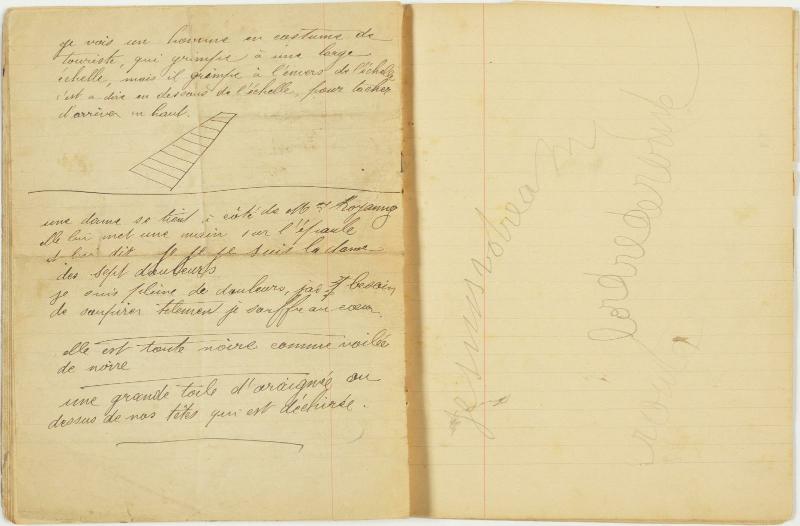 je vois un homme en costume de
touriste, qui grimpe à une large
échelle, mais il grimpe à l'envers de l'échelle
c'est à dire en dessous de l'échelle, pour tacher
d'arriver en haut.
une dame se tient à côté de Mme
elle lui met une main sur l'épaule
et lui dit je je je suis la dame
des sept douleurs
je suis pleine de douleurs, j'ai besoin
de soupirer tellement je souffre au cœur.
elle est toute noire comme voilée
de noire
une grande toile d'araignée au
dessus de nos têtes qui est déchirée.
jesuisvotream